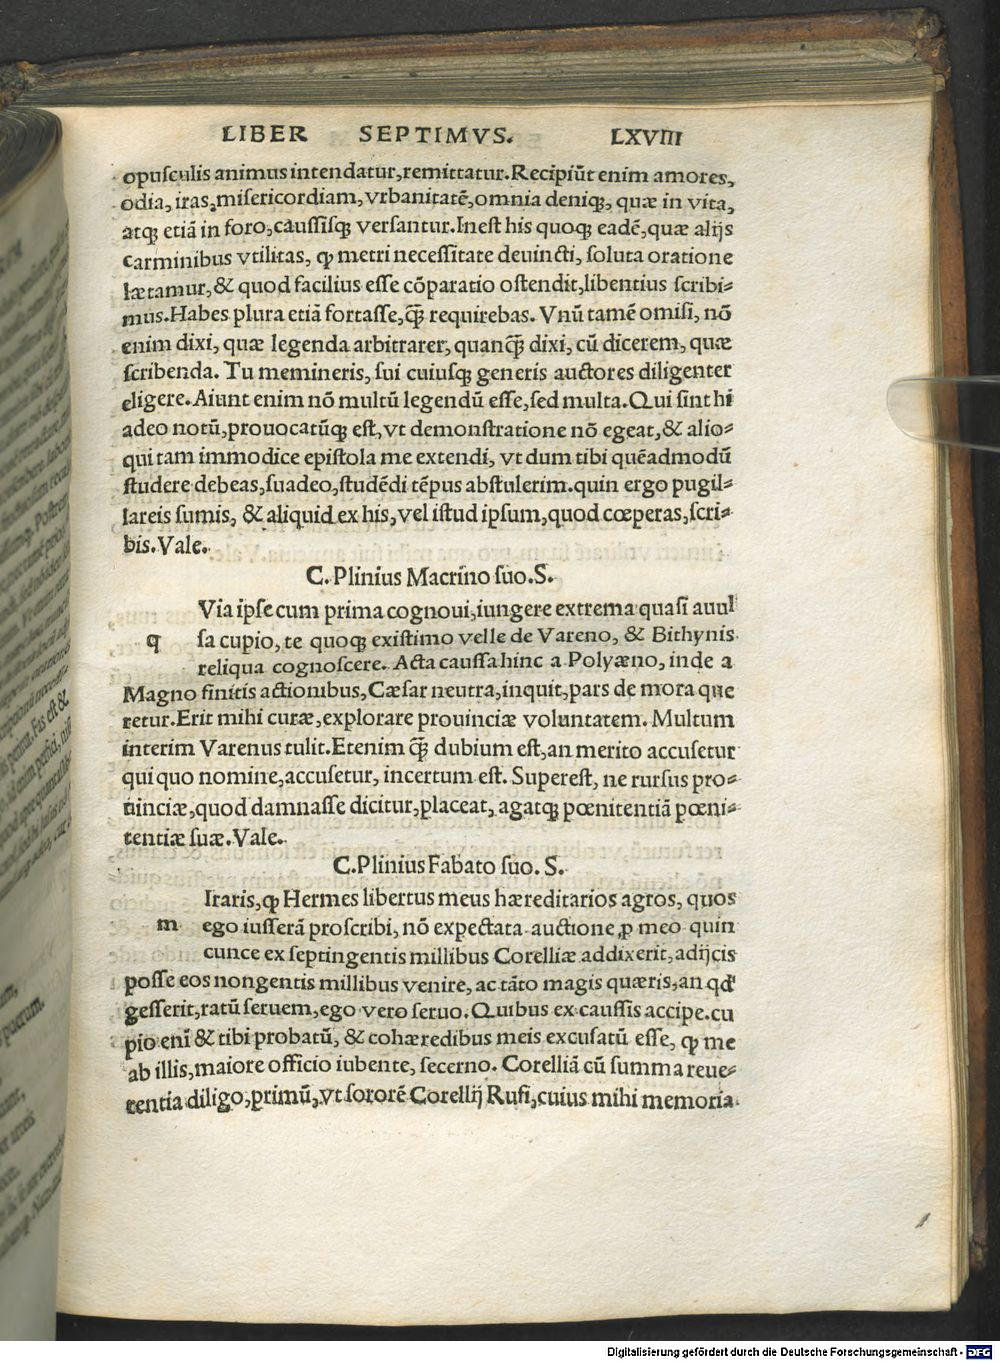 LIBER SEPTIMVS. LXVIII
opusculis animus intendatur,remittatur.Recipiũt enim amores,
odia, iras,misericordiam,vrbanitatẽ,omnia deniqꝫ, quæ in vita,
atqꝫ etiã in foro,caussisqꝫ versantur.Inest his quoqꝫ eadẽ,quæ alijs
carminibus vtilitas, ꝙ metri necessitate deuincti, soluta oratione
lætamur,& quod facilius esse cõparatio ostendit,libentius scribi-
mus.Habes plura etiã fortasse,q̃ꝫ requirebas. Vnũ tamẽ omisi, nõ
enim dixi, quæ legenda arbitrarer,quanq̃ꝫ dixi, cũ dicerem, quæ
scribenda. Tu memineris, sui cuiusqꝫ generis auctores diligenter
eligere.Aiunt enim nõ multũ legendũ esse,sed multa.Qui sint hi
adeo notũ,prouocatũqꝫ est,vt demonstratione nõ egeat,& alio-
qui tam immodice epistola me extendi, vt dum tibi quẽadmodũ
studere debeas,suadeo,studẽdi tẽpus abstulerim.quin ergo pugil-
lareis sumis, & aliquid ex his,vel istud ipsum,quod cœperas,scri-
bis.Vale.
C. Plinius Macrino suo.S.
Via ipse cum prima cognoui,iungere extrema quasi auul
q sa cupio, te quoqꝫ existimo velle de Vareno, & Bithynis
reliqua cognoscere. Acta caussa hinc a Polyæno, inde a
Magno finitis actionibus,Cæsar neutra,inquit,pars de mora que
retur.Erit mihi curæ,explorare prouinciæ voluntatem. Multum
interim Varenus tulit.Etenim q̃ꝫ dubium est,an merito accusetur
qui quo nomine,accusetur, incertum est. Superest, ne rursus pro-
uinciæ,quod damnasse dicitur,placeat, agatqꝫ pœnitentiã pœni-
tentiæ suæ.Vale.
C.Plinius Fabato suo. S.
Iraris,ꝙ Hermes libertus meus hæreditarios agros, quos
m ego iusserã proscribi, nõ expectata auctione,ꝓ meo quin
cunce ex septingentis millibus Corelliæ addixerit,adijcis
posse eos nongentis millibus venire, ac tãto magis quæris,an qđ
gesserit,ratũ seruem,ego vero seruo.Quibus ex caussis accipe.cu
pio enĩ & tibi probatũ, & cohæredibus meis excusatũ esse, ꝙ me
ab illis,maiore officio iubente, secerno. Corelliã cũ summa reue-
rentia diligo,primũ,vt sororẽ Corellij Rufi,cuius mihi memoria
Digitalisierung gefördert durch die Deutsche Forschungsgemeinschaft - DFG